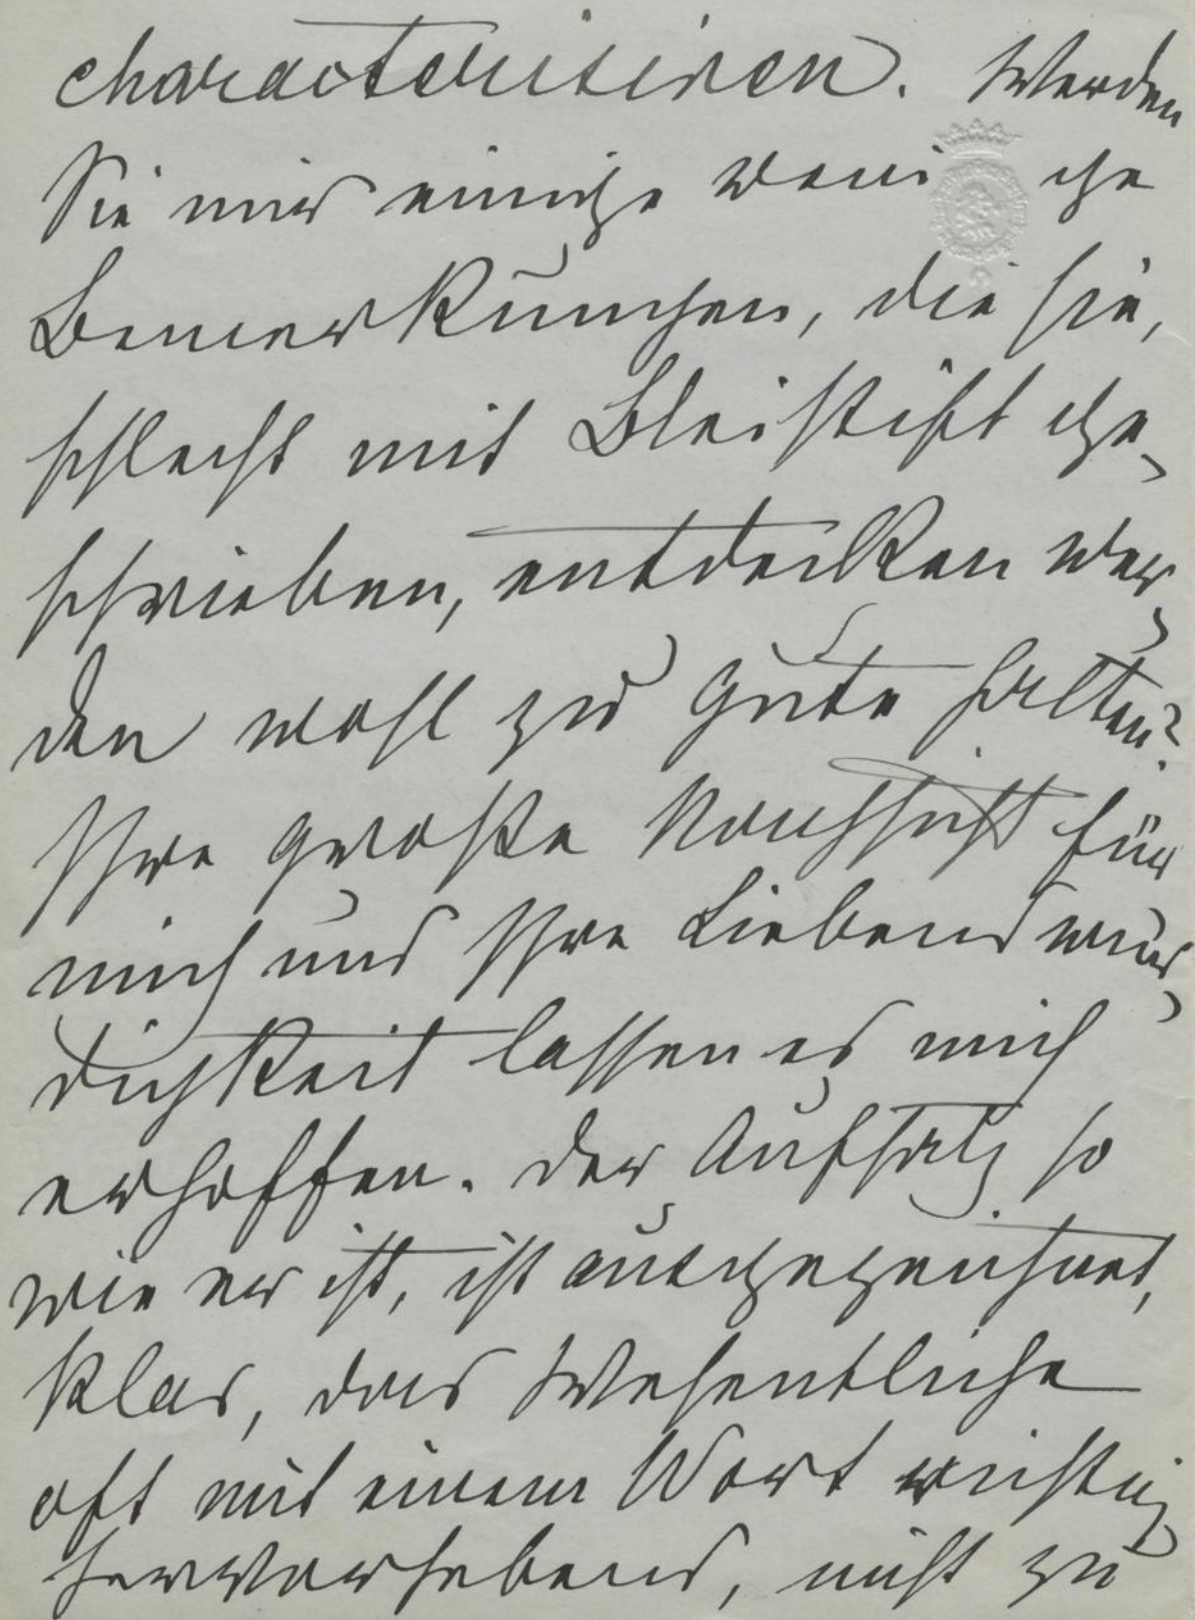 characterisiren. Werden
Sie mir einige weni ge
Bemerkungen, die sie,
schlecht mit Bleistift ge-
schrieben, entdecken wer-
den wohl zu gute halten?
Ihre große Nachsicht für
mich und Ihre Liebenswür-
digkeit lassen es mich
erhoffen. Der Aufsatz so
wie er ist, ist ausgezeichnet,
klar, das Wesentliche
oft mit einem Wort richtig
hervorhebend, nicht zu